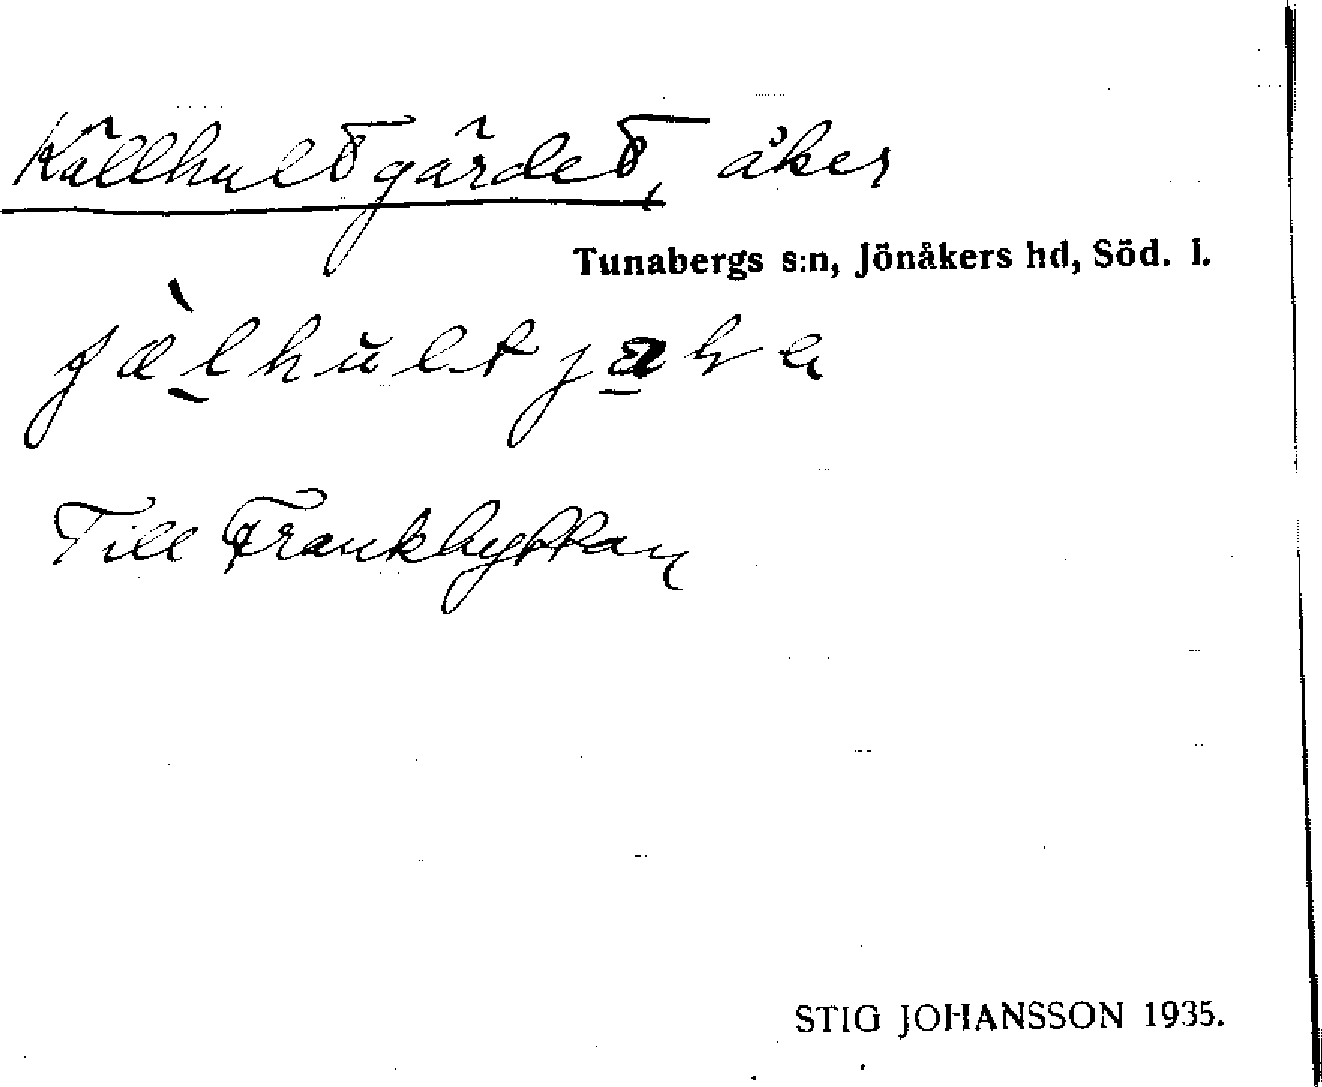 Källhultgärdet, åker
Tunabergs s:n, Jönåkers hd, Söd. l.
Till Frankhyttan
STIG JOHANSSON 1935.